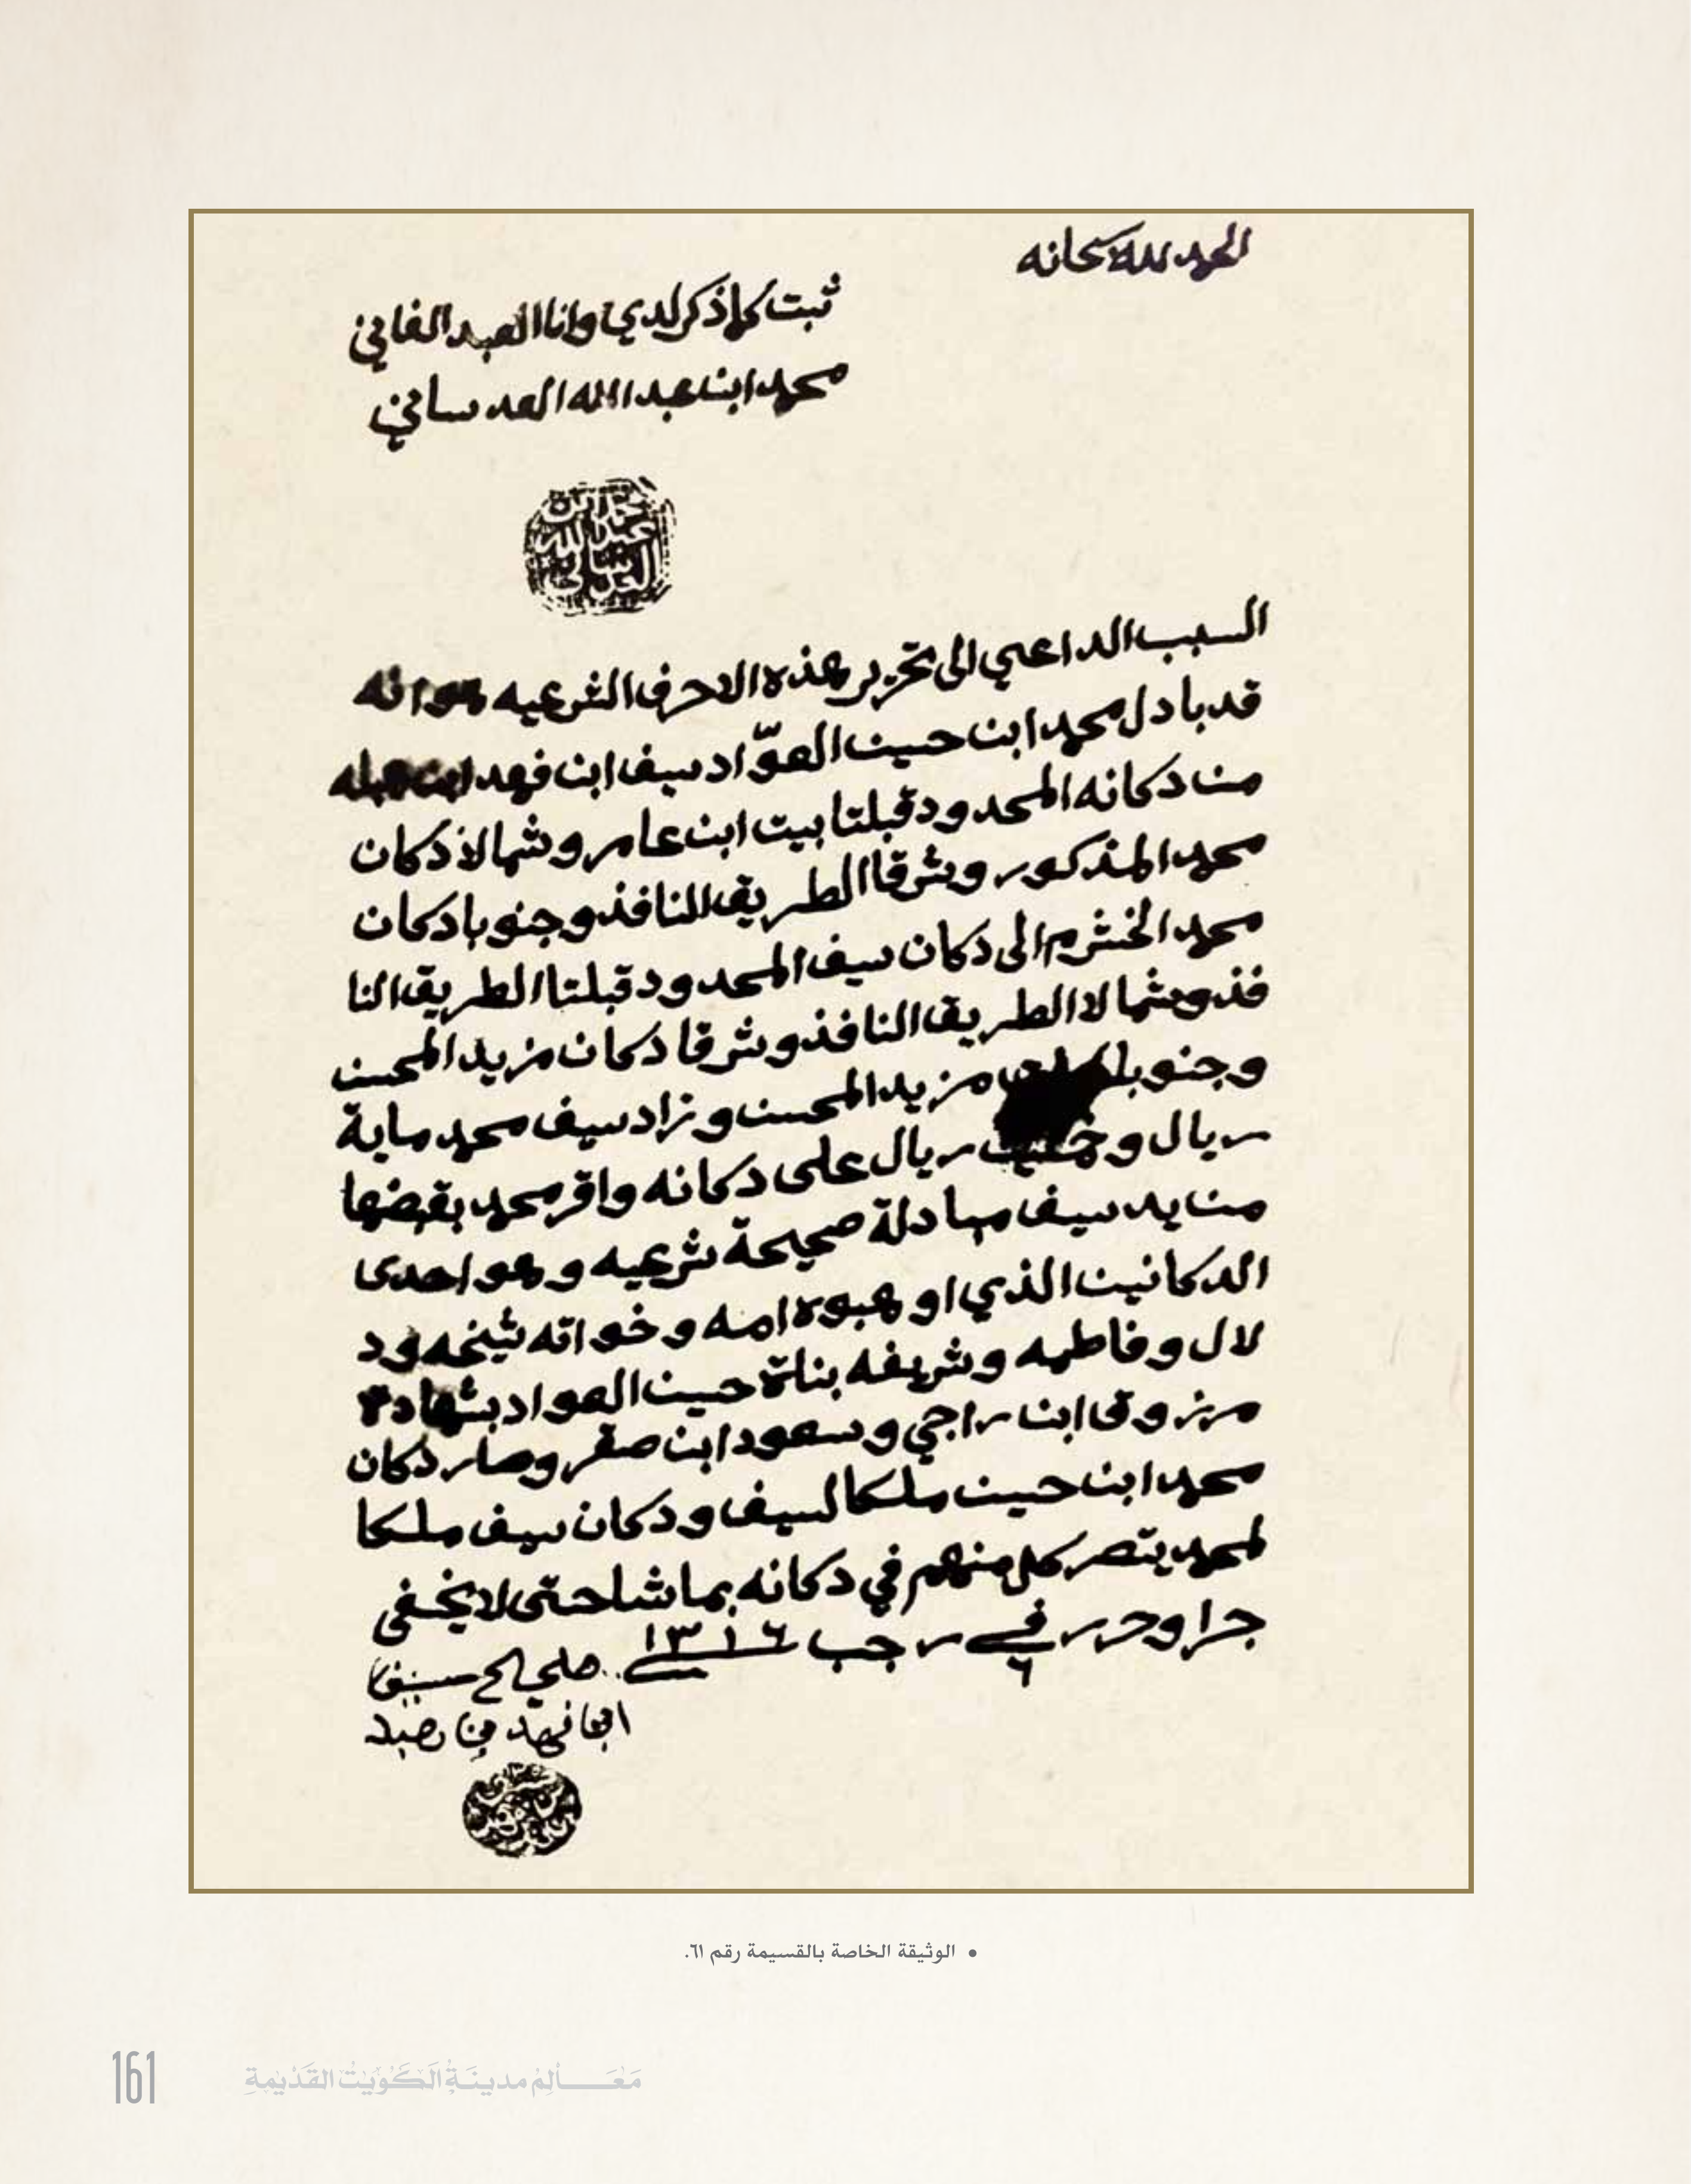 الحمد لله سبحانه
ثبت كلما ذكر لدي وانا العبد الفاني
محمد ابن عبد الله العدساني
محمد ابن
عبد الله
العدساني
السبب الداعي الى تحرير هذه الاحرف الشرعيه هو انه
قد بادل محمد ابن حسين العوّاد سيف ابن فهد ابن
من دكانه المحدود قبلتا بيت ابن عامر وشمالا دكان
محمد المذكور وشرقا الطريق النافذ وجنوبا دكان
محمد الخشرم الى دكان سيف المحدود قبلتا الطريق النا
فذ وشمالا الطريق النافذ وشرقا دكان مزيد المحسن
وجنوبا مزيد المحسن وزاد سيف محمد ماية
ريال وخمسين ريال على دكانه واقر محمد بقبضها
من يد سيف مبادلة صحيحة شرعيه وهو احدى
الدكانين الذي اوهبوه امه وخواته شيخه ود
لال وفاطمه وشريفه بناة حسين العواد بشهادة
مرزوق ابن راجي وسعود ابن صقر وصار دكان
محمد ابن حسين ملكا لسيف ودكان سيف ملكا
لمحمد يتصر كل منهم في دكانه بما شا حتى لا يخفى
جرا وحرر في ٦ رجب ١٣١٦
• الوثيقة الخاصة بالقسيمة رقم ٦١.
161
مَعَالِم مدينَة الكُوَيْت القَدِيمة